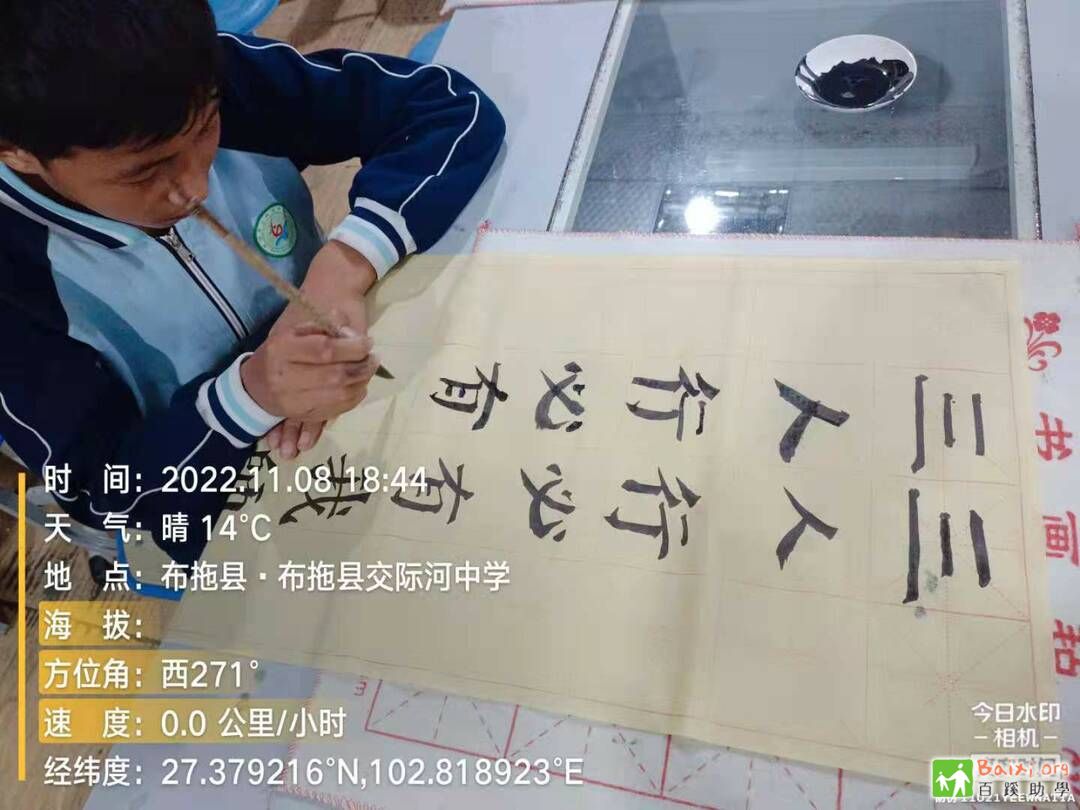 三人行必有我师
三人行必有
书画
时 间：2022.11.08 18:44
天 气：晴 14℃
地 点：布拖县·布拖县交际河中学
海 拔：
方位角：西271°
速 度：0.0 公里/小时
经纬度：27.379216°N,102.818923°E
今日水印
-相机-
Baixi.org
百蹊助學
3